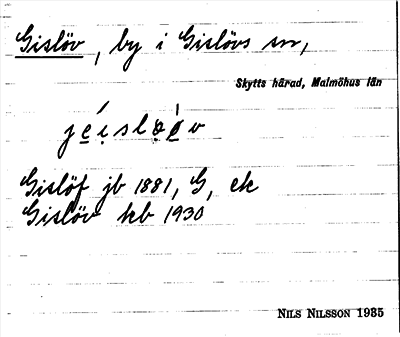 Gislöv, by i Gislövs sn,
Skytts härad, Malmöhus län
Gislöf jb 1881, G, ek
Gislöv kb 1930
NILS NILSSON 1935